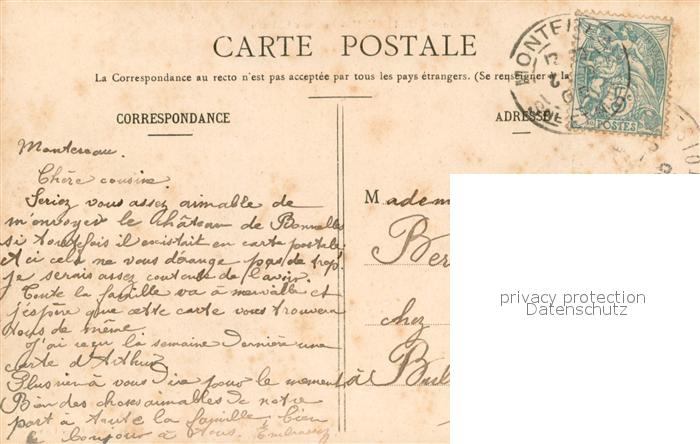 CARTE POSTALE
La Correspondance au recto n'est pas acceptée par tous les pays étrangers. (Se renseigner à la
CORRESPONDANCE
Chère cousine.
Seriez vous assez aimable de
m'envoyer le château de Bonnelles
si toutefois il existait en carte postale
et ci cela ne vous dérange pas de trop!
je serais assez contente de l'avoir.
Toute la famille va à merveille et
j'espère que cette carte vous trouvera
tous de même.
J'ai reçu la semaine dernière une
carte d'Arthur
Plus rien à vous dire pour le moment
Bien des choses aimables de notre
part à toute la famille. bien
le bonjour à tous.
ADRESSE
Madem
Ber
chez
à Bul
POSTES
privacy protection
Datenschutz